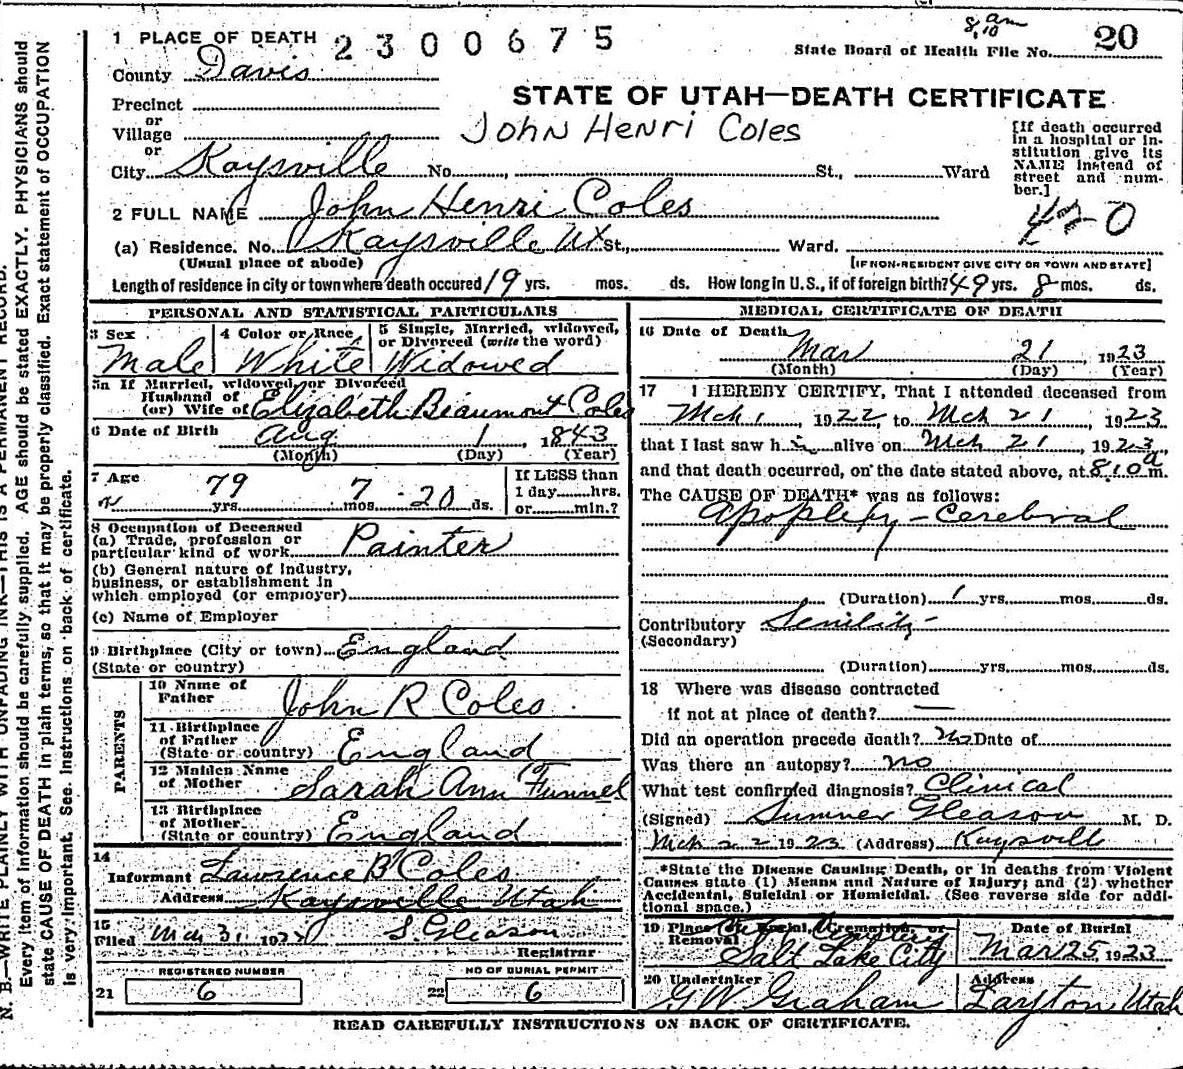 8,10 am
1 PLACE OF DEATH 2300675
State Board of Health File No. 20
County Davis
Precinct
or
Village
or
City Kaysville No. , St., Ward
STATE OF UTAH—DEATH CERTIFICATE
John Henri Coles
[If death occurred
in a hospital or in-
stitution give its
NAME instead of
street and num-
ber.]
2 FULL NAME John Henri Coles
(a) Residence. No. Kaysville Ut St., Ward.
(Usual place of abode)
[IF NON-RESIDENT GIVE CITY OR TOWN AND STATE]
Length of residence in city or town where death occured 19 yrs. mos. ds. How long in U.S., if of foreign birth? 49 yrs. 8 mos. ds.
PERSONAL AND STATISTICAL PARTICULARS
3 Sex
Male
4 Color or Race
White
5 Single, Married, widowed,
or Divorced (write the word)
Widowed
5a If Married, widowed, or Divorced
Husband of
(or) Wife of Elizabeth Beaumont Coles
6 Date of Birth Aug 1, 1843
(Month) (Day) (Year)
7 Age 79 yrs. 7 mos. 20 ds.
If LESS than
1 day hrs.
or min.?
8 Occupation of Deceased
(a) Trade, profession or
particular kind of work Painter
(b) General nature of industry,
business, or establishment in
which employed (or employer)
(c) Name of Employer
9 Birthplace (City or town) England
(State or country)
PARENTS
10 Name of
Father John R Coles
11 Birthplace
of Father
(State or country) England
12 Maiden Name
of Mother Sarah Ann Funnel
13 Birthplace
of Mother
(State or country) England
14
Informant Lawrence B Coles
Address Kaysville Utah
15
Filed Mch 31 192 S. Gleason
Registrar
REGISTERED NUMBER
21 6
NO OF BURIAL PERMIT
22 6
MEDICAL CERTIFICATE OF DEATH
16 Date of Death Mar 21, 1923
(Month) (Day) (Year)
17 I HEREBY CERTIFY, That I attended deceased from
Mch 1, 1922, to Mch 21, 1923
that I last saw him alive on Mch 21, 1923,
and that death occurred, on the date stated above, at 8,10 a m.
The CAUSE OF DEATH* was as follows:
Apoplexy - Cerebral
(Duration) 1 yrs. mos. ds.
Contributory Senility -
(Secondary)
(Duration) yrs. mos. ds.
18 Where was disease contracted
if not at place of death? —
Did an operation precede death? No Date of
Was there an autopsy? no
What test confirmed diagnosis? Clinical
(Signed) Sumner Gleason M. D.
Mch 22 1923 (Address) Kaysville
*State the Disease Causing Death, or in deaths from Violent
Causes state (1) Means and Nature of Injury; and (2) whether
Accidental, Suicidal or Homicidal. (See reverse side for addi-
tional space.)
19 Place of Burial, Cremation, or
Removal
Salt Lake City
Date of Burial
Mar 25, 1923
20 Undertaker
G W Graham
Address
Layton Utah
READ CAREFULLY INSTRUCTIONS ON BACK OF CERTIFICATE.
N. B.—WRITE PLAINLY WITH UNFADING INK—THIS IS A PERMANENT RECORD.
Every item of information should be carefully supplied. AGE should be stated EXACTLY. PHYSICIANS should
state CAUSE OF DEATH in plain terms, so that it may be properly classified. Exact statement of OCCUPATION
is very important. See Instructions on back of certificate.